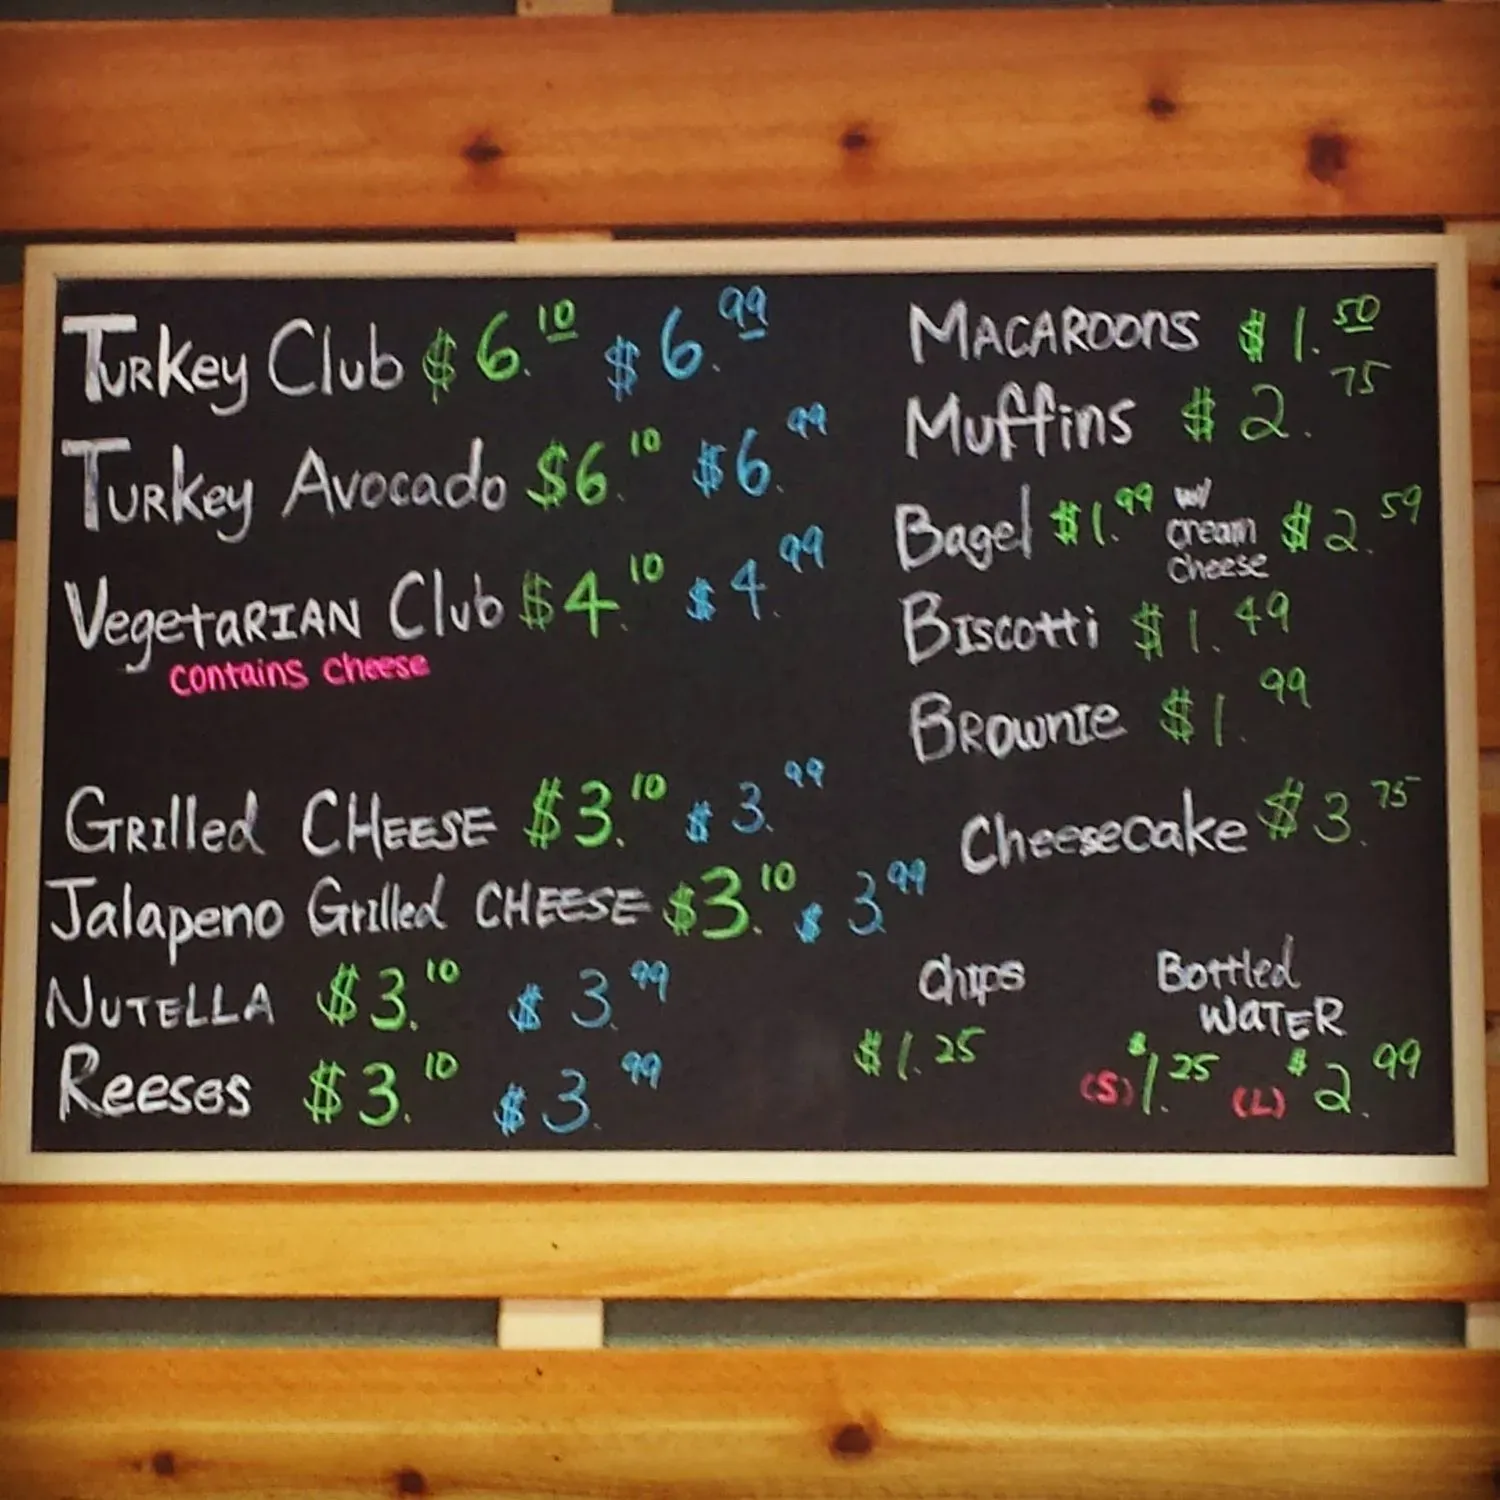 Turkey Club $6.10 $6.99
Turkey Avocado $6.10 $6.99
Vegetarian Club $4.10 $4.99
contains cheese
Grilled CHEESE $3.10 $3.99
Jalapeno Grilled CHEESE $3.10 $3.99
NUTELLA $3.10 $3.99
Reeses $3.10 $3.99
MACAROONS $1.50
Muffins $2.75
Bagel $1.99 w/ cream cheese $2.59
Biscotti $1.49
BROWNIE $1.99
Cheesecake $3.75
Chips
$1.25
Bottled
WATER
(S) $1.25 (L) $2.99